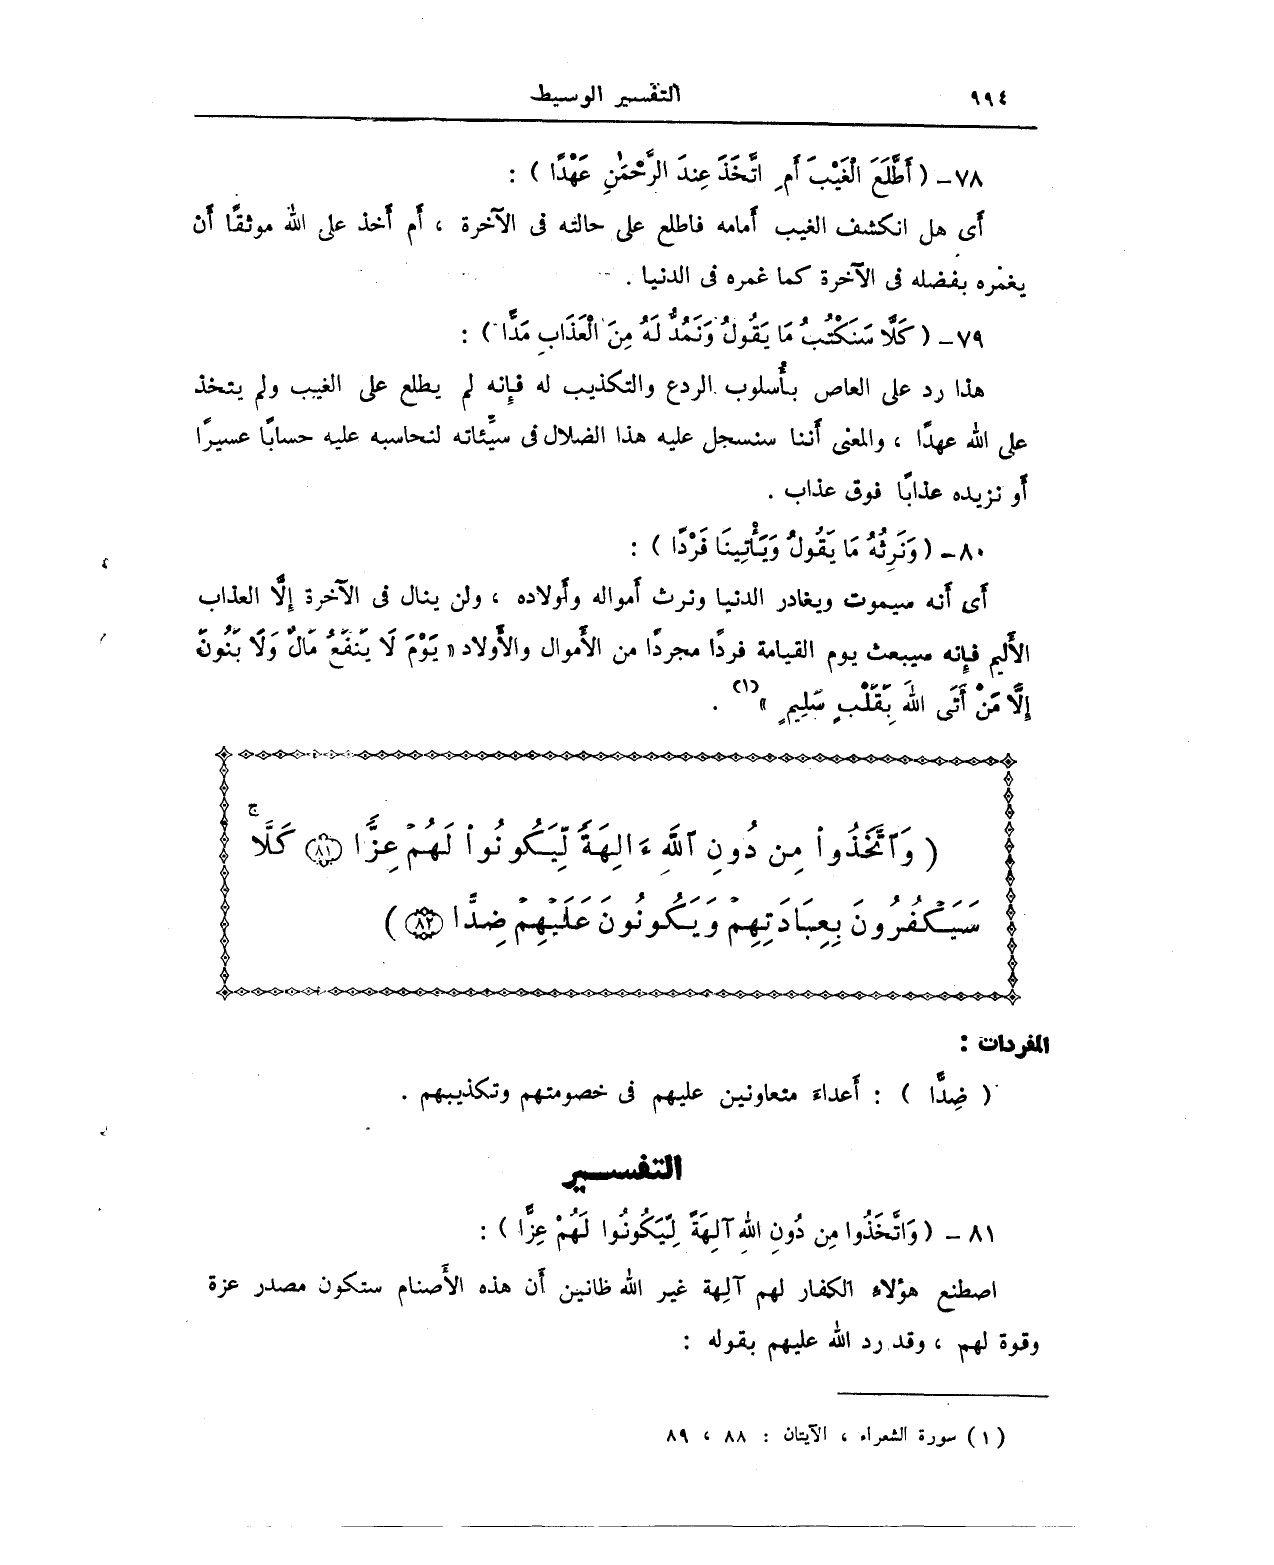 ٩٩٤ التفسير الوسيط
٧٨- ( أَطَّلَعَ الْغَيْبَ أَمِ اتَّخَذَ عِندَ الرَّحْمَٰنِ عَهْدًا ) :
أى هل انكشف الغيب أمامه فاطلع على حالته فى الآخرة ، أم أخذ على الله موثقًا أن
يغمره بفضله فى الآخرة كما غمره فى الدنيا .
٧٩- ( كَلَّا سَنَكْتُبُ مَا يَقُولُ وَنَمُدُّ لَهُ مِنَ الْعَذَابِ مَدًّا ) :
هذا رد على العاص بأُسلوب الردع والتكذيب له فإنه لم يطلع على الغيب ولم يتخذ
على الله عهدًا ، والمعنى أننا سنسجل عليه هذا الضلال فى سيِّئاته لنحاسبه عليه حسابًا عسيرًا
أو نزيده عذابًا فوق عذاب .
٨٠- ( وَنَرِثُهُ مَا يَقُولُ وَيَأْتِينَا فَرْدًا ) :
أى أنه سيموت ويغادر الدنيا ونرث أمواله وأولاده ، ولن ينال فى الآخرة إلَّا العذاب
الأليم فإنه سيبعث يوم القيامة فردًا مجردًا من الأموال والأولاد « يَوْمَ لَا يَنفَعُ مَالٌ وَلَا بَنُونَ
إِلَّا مَنْ أَتَى اللهَ بِقَلْبٍ سَلِيمٍ »(١) .
( وَٱتَّخَذُوا۟ مِن دُونِ ٱللَّهِ ءَالِهَةً لِّيَكُونُوا۟ لَهُمْ عِزًّا ٨١ كَلَّا ۚ
سَيَكْفُرُونَ بِعِبَادَتِهِمْ وَيَكُونُونَ عَلَيْهِمْ ضِدًّا ٨٢ )
المفردات :
( ضِدًّا ) : أعداءً متعاونين عليهم فى خصومتهم وتكذيبهم .
التفسير
٨١ - ( وَاتَّخَذُوا مِن دُونِ اللهِ آلِهَةً لِّيَكُونُوا لَهُمْ عِزًّا ) :
اصطنع هؤلاء الكفار لهم آلِهة غير الله ظانين أن هذه الأصنام ستكون مصدر عزة
وقوة لهم ، وقد رد الله عليهم بقوله :
(١) سورة الشعراء ، الآيتان : ٨٨ ، ٨٩